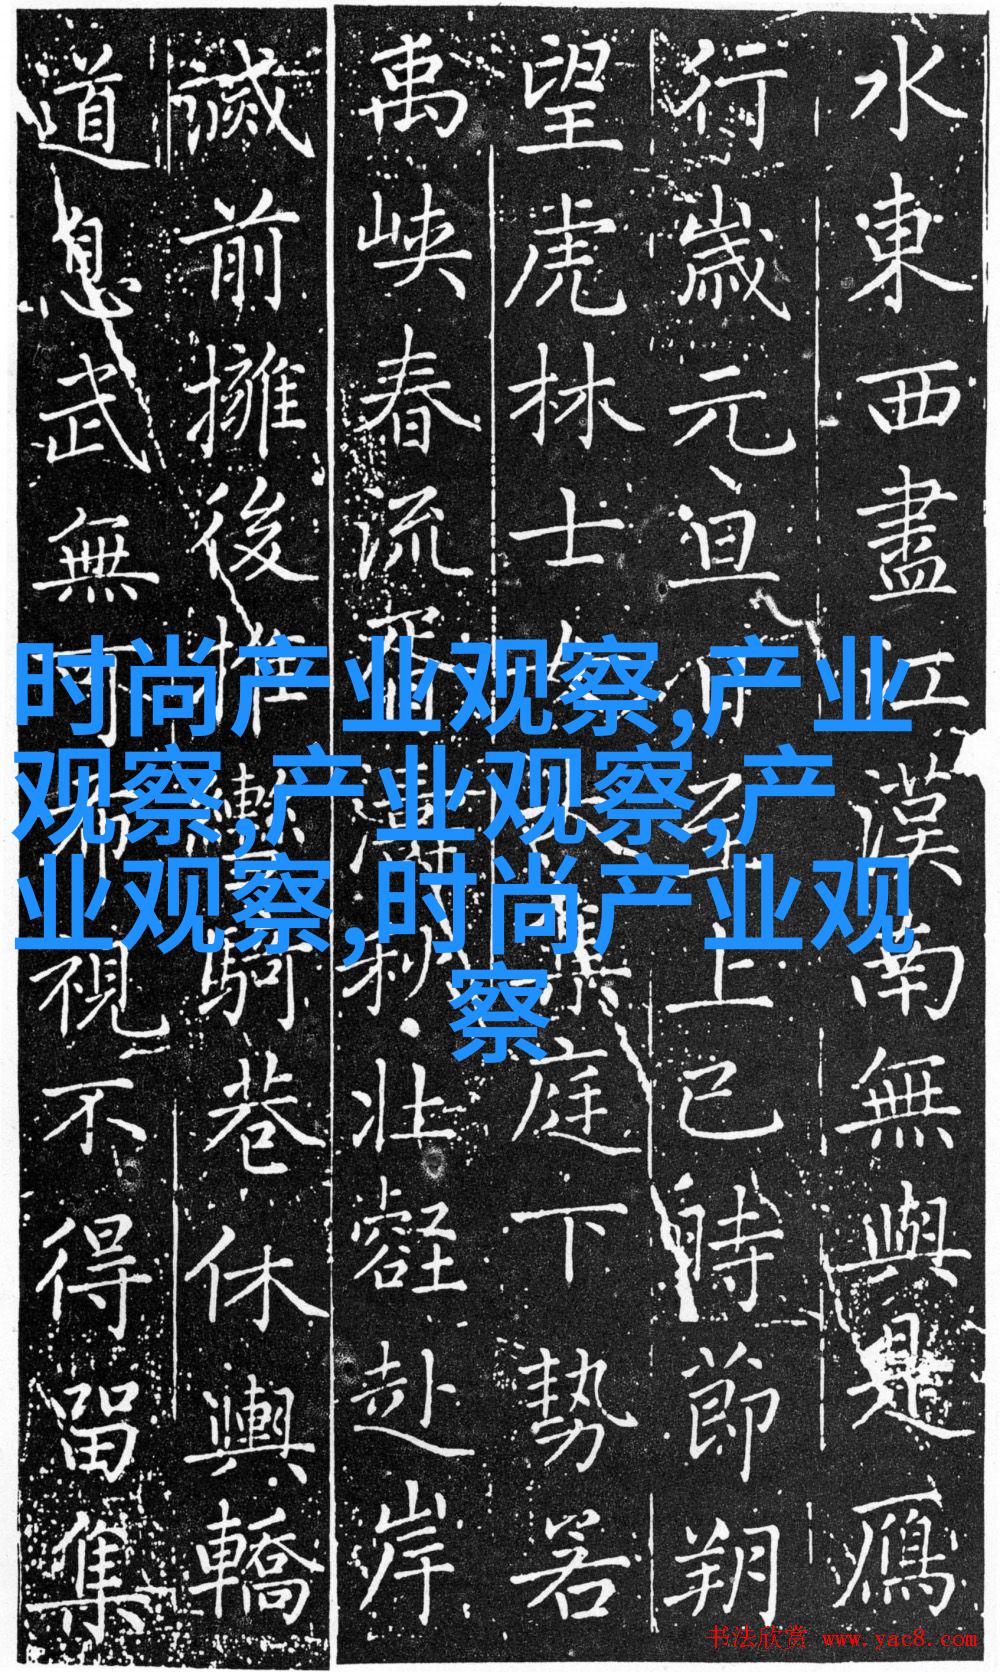 水東西盡江漢南無與是鴈
行歲元旦至上巳時節朔
望虎林士女大集庭下勢若
禹峽春流秋壯赴岸
前擁後推騎巷休輿轎
道息武無可布視不得留集
时尚产业观察,产业
观察,产业观察,产
业观察,时尚产业观
察
书法欣赏 www.yac8.com